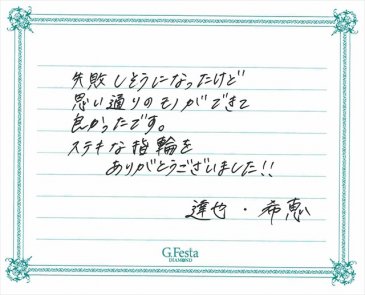 失敗しそうになったけど
思い通りのモノができて
良かったです。
ステキな指輪を
ありがとうございました!!
達也・希恵
G.Festa
DIAMOND